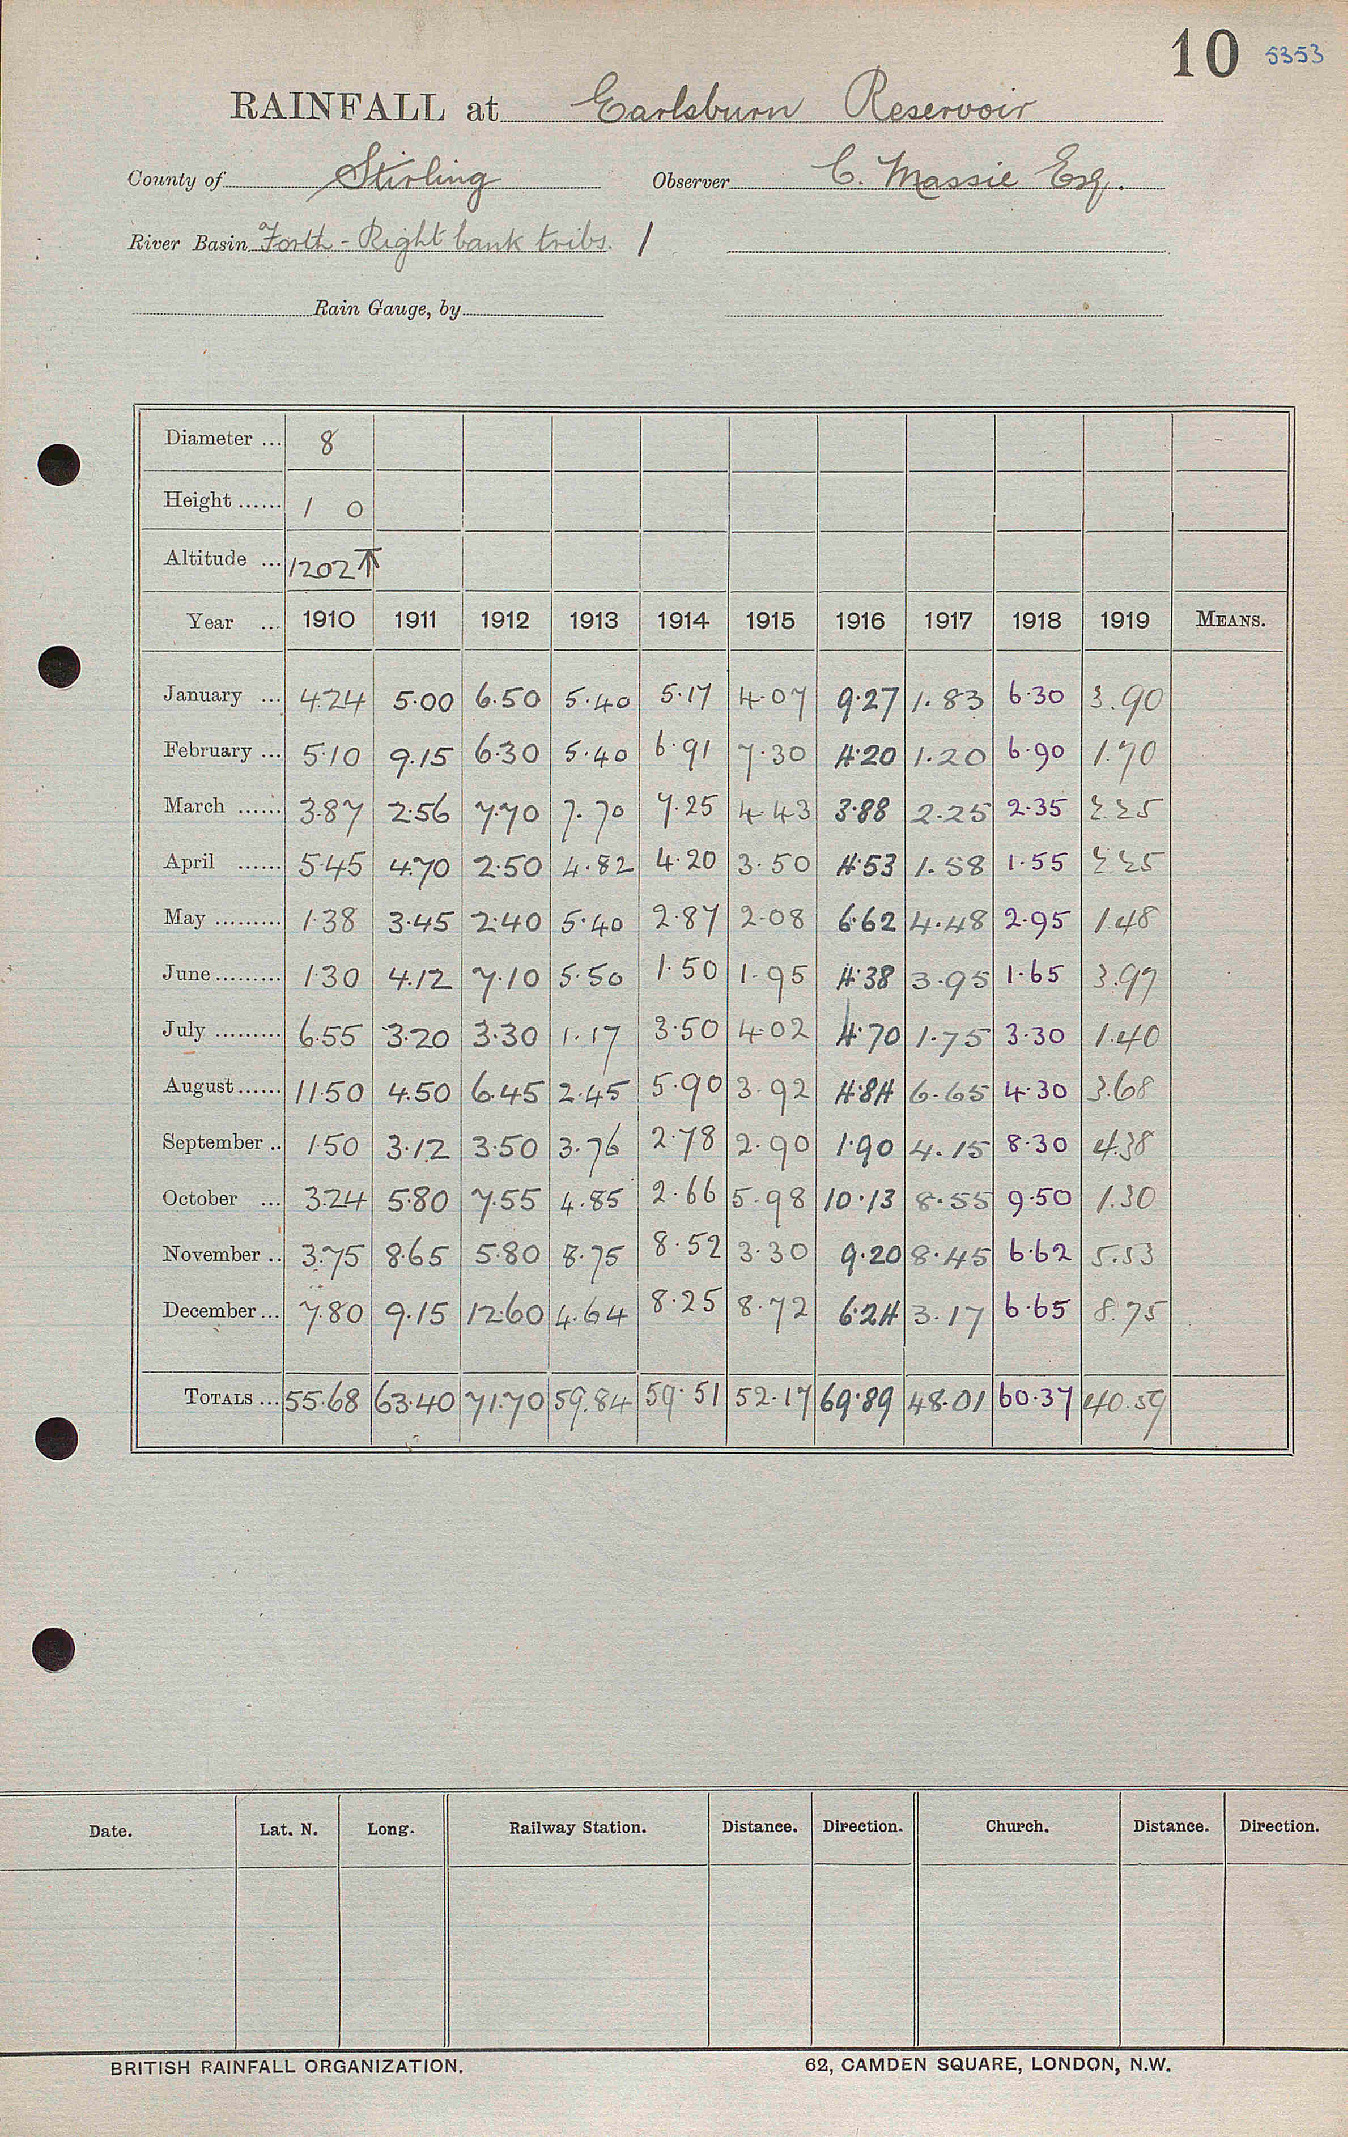 10 5353
RAINFALL at Earlsburn Reservoir
County of Stirling Observer C. Massie Esq.
River Basin Forth - Right bank tribs. 1
Rain Gauge, by
Diameter ... 8
Height ...... 1 0
Altitude ... 1202↑
Year ... 1910 1911 1912 1913 1914 1915 1916 1917 1918 1919 MEANS.
January ... 4.24 5.00 6.50 5.40 5.17 4.07 9.27 1.83 6.30 3.90
February ... 5.10 9.15 6.30 5.40 6.91 7.30 4.20 1.20 6.90 1.70
March ...... 3.87 2.56 7.70 7.70 7.25 4.43 3.88 2.25 2.35 2.25
April ...... 5.45 4.70 2.50 4.82 4.20 3.50 4.53 1.58 1.55 2.25
May ......... 1.38 3.45 2.40 5.40 2.87 2.08 6.62 4.48 2.95 1.48
June ......... 1.30 4.12 7.10 5.50 1.50 1.95 4.38 3.95 1.65 3.97
July ......... 6.55 3.20 3.30 1.17 3.50 4.02 4.70 1.75 3.30 1.40
August ...... 11.50 4.50 6.45 2.45 5.90 3.92 4.84 6.65 4.30 3.68
September .. 1.50 3.12 3.50 3.76 2.78 2.90 1.90 4.15 8.30 4.38
October ... 3.24 5.80 7.55 4.85 2.66 5.98 10.13 8.55 9.50 1.30
November .. 3.75 8.65 5.80 8.75 8.52 3.30 9.20 8.45 6.62 5.53
December ... 7.80 9.15 12.60 4.64 8.25 8.72 6.24 3.17 6.65 8.75
TOTALS ... 55.68 63.40 71.70 59.84 59.51 52.17 69.89 48.01 60.37 40.59
Date. Lat. N. Long. Railway Station. Distance. Direction. Church. Distance. Direction.
BRITISH RAINFALL ORGANIZATION. 62, CAMDEN SQUARE, LONDON, N.W.